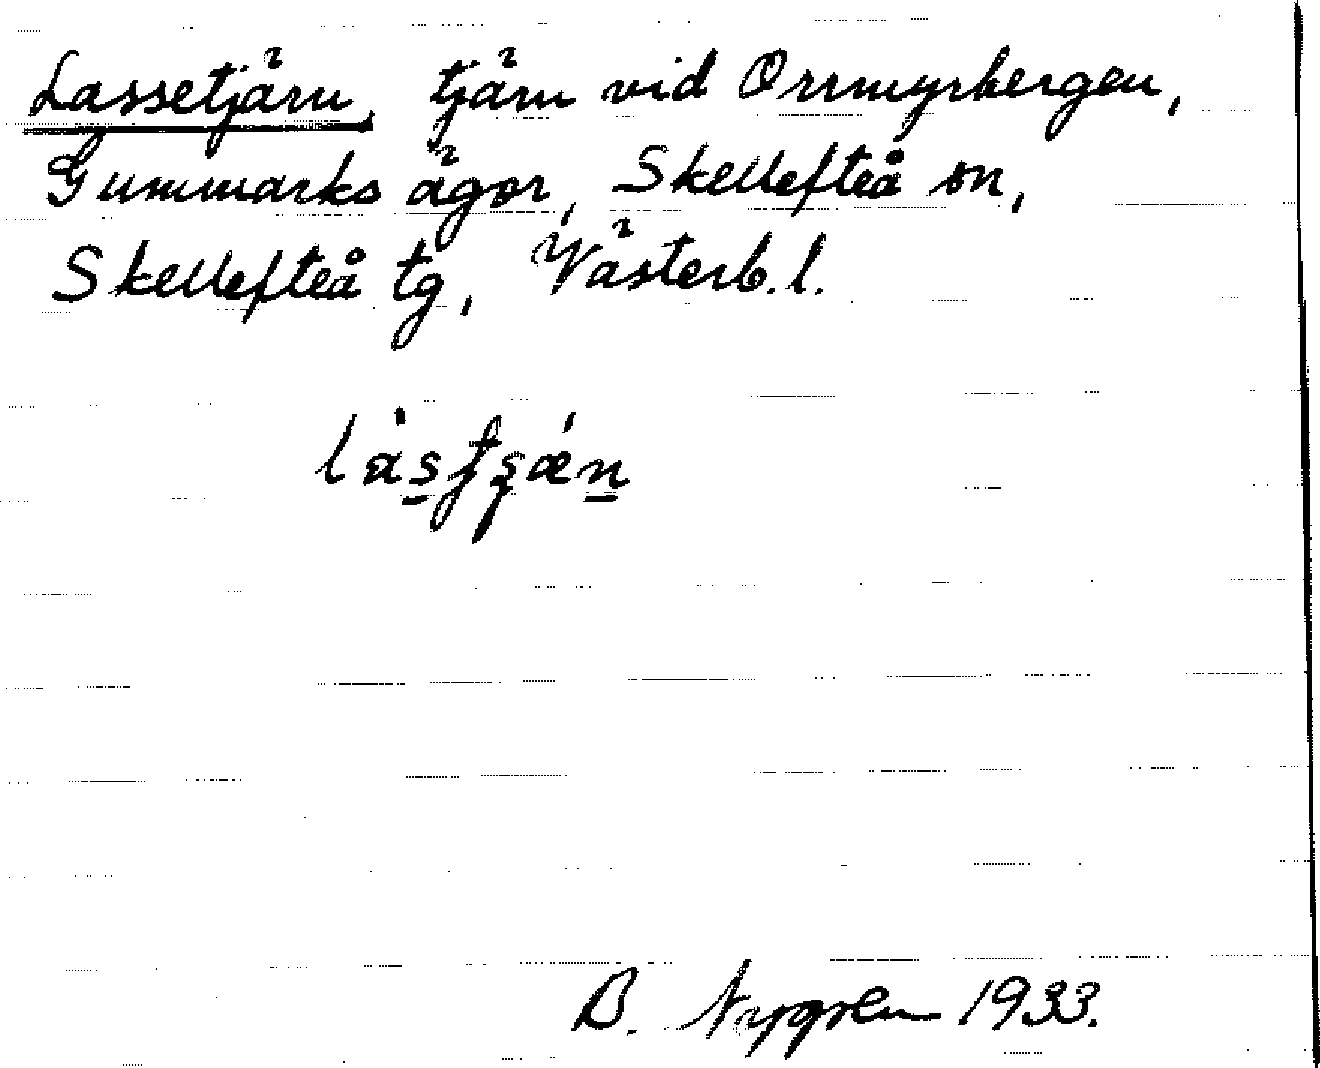 Lassetjärn, tjärn vid Orrmyrbergen,
Gummarks ägor, Skellefteå sn,
Skellefteå tg, Västerb. l.
B. Nygren 1933.